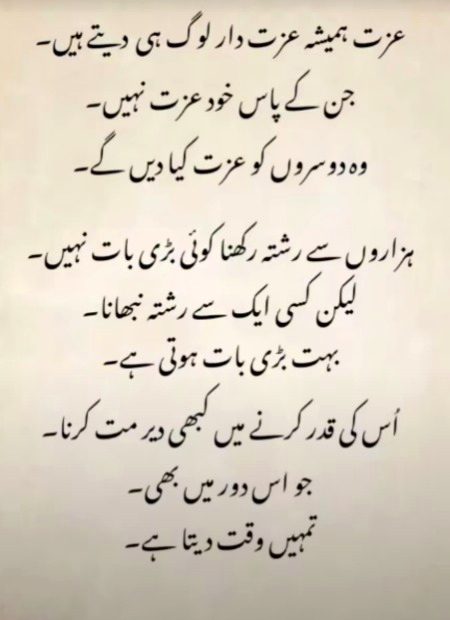 عزت ہمیشہ عزت دار لوگ ہی دیتے ہیں۔
جن کے پاس خود عزت نہیں۔
وہ دوسروں کو عزت کیا دیں گے۔
ہزاروں سے رشتہ رکھنا کوئی بڑی بات نہیں۔
لیکن کسی ایک سے رشتہ نبھانا۔
بہت بڑی بات ہوتی ہے۔
اُس کی قدر کرنے میں کبھی دیر مت کرنا۔
جو اس دور میں بھی۔
تمہیں وقت دیتا ہے۔